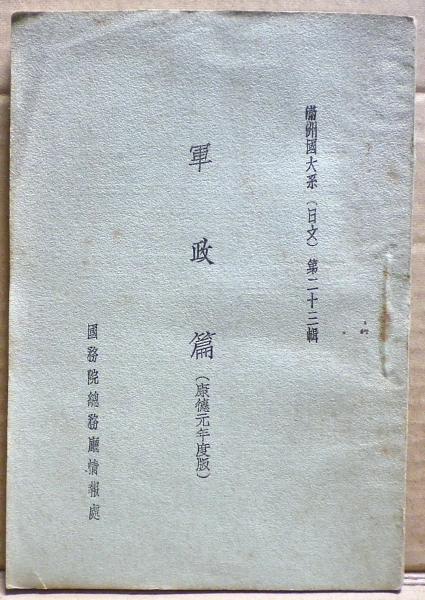 滿洲國大系（日文）第二十三輯
軍政篇（康德元年度版）
國務院總務廳情報處